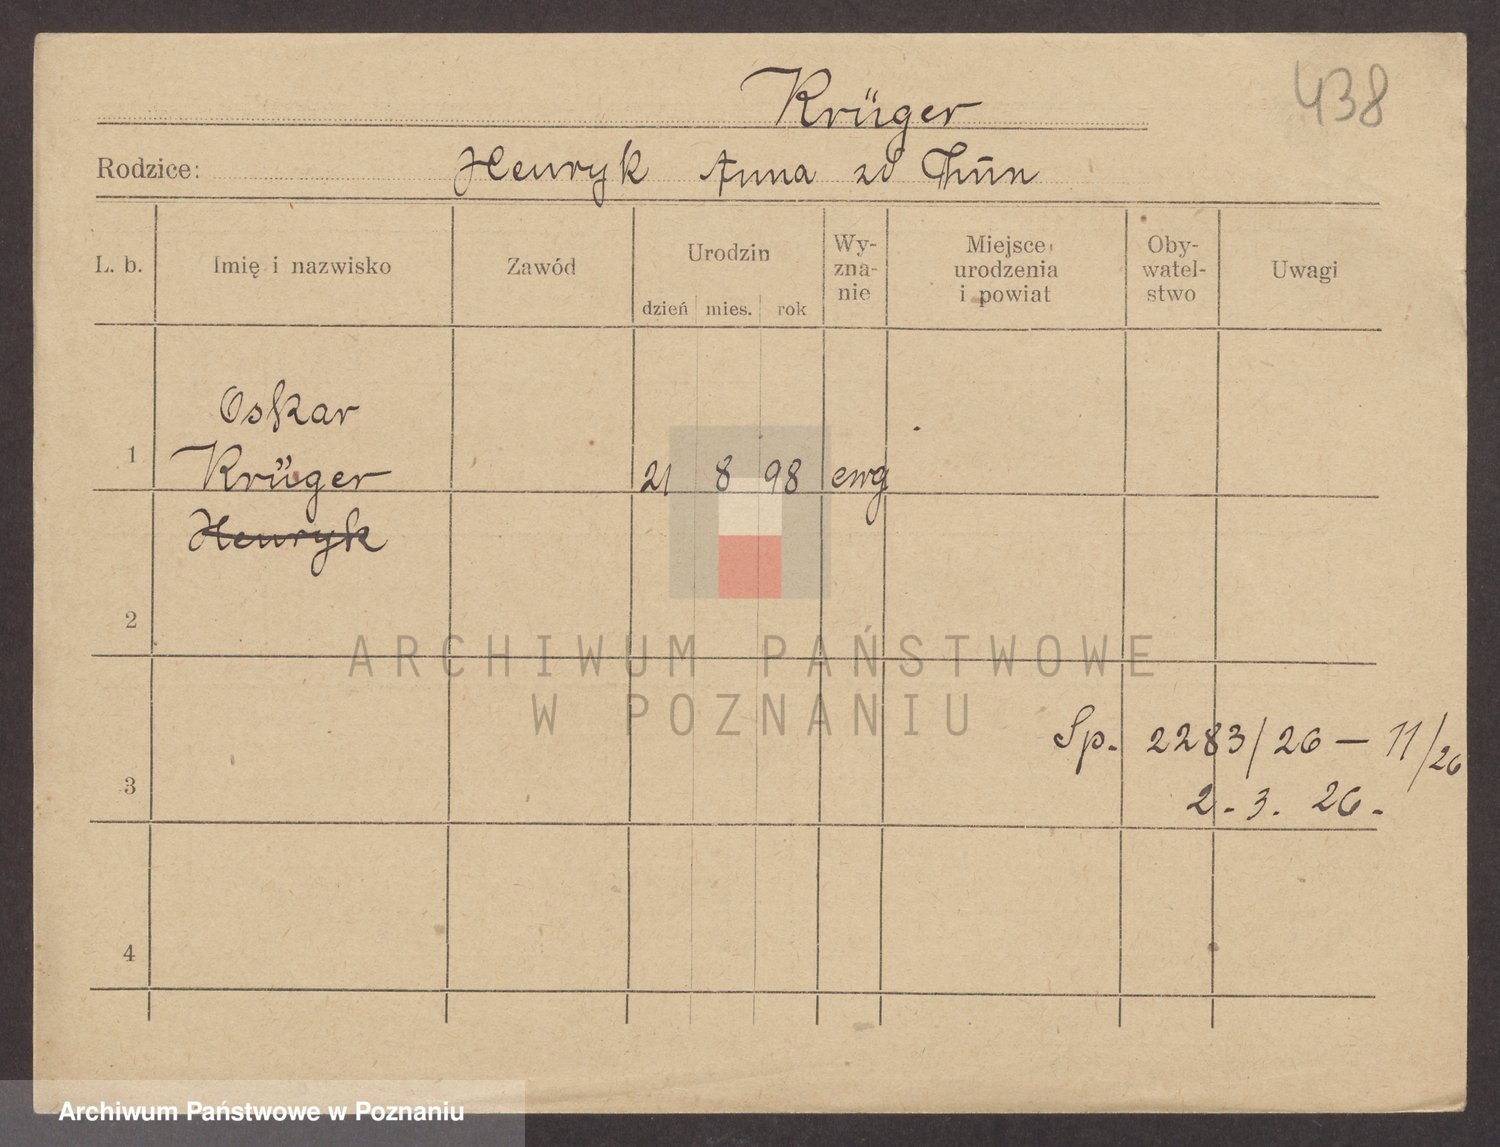 Krüger
438
Rodzice: Henryk Anna zd Thün
L. b.
Imię i nazwisko
Zawód
Urodzin
dzień mies. rok
Wy-
zna-
nie
Miejsce
urodzenia
i powiat
Oby-
watel-
stwo
Uwagi
Oskar
1 Krüger 21 8 98 ewg
Henryk
2
ARCHIWUM PAŃSTWOWE
W POZNANIU
Sp. 2283/26 — 11/26
3 2. 3. 26.
4
Archiwum Państwowe w Poznaniu